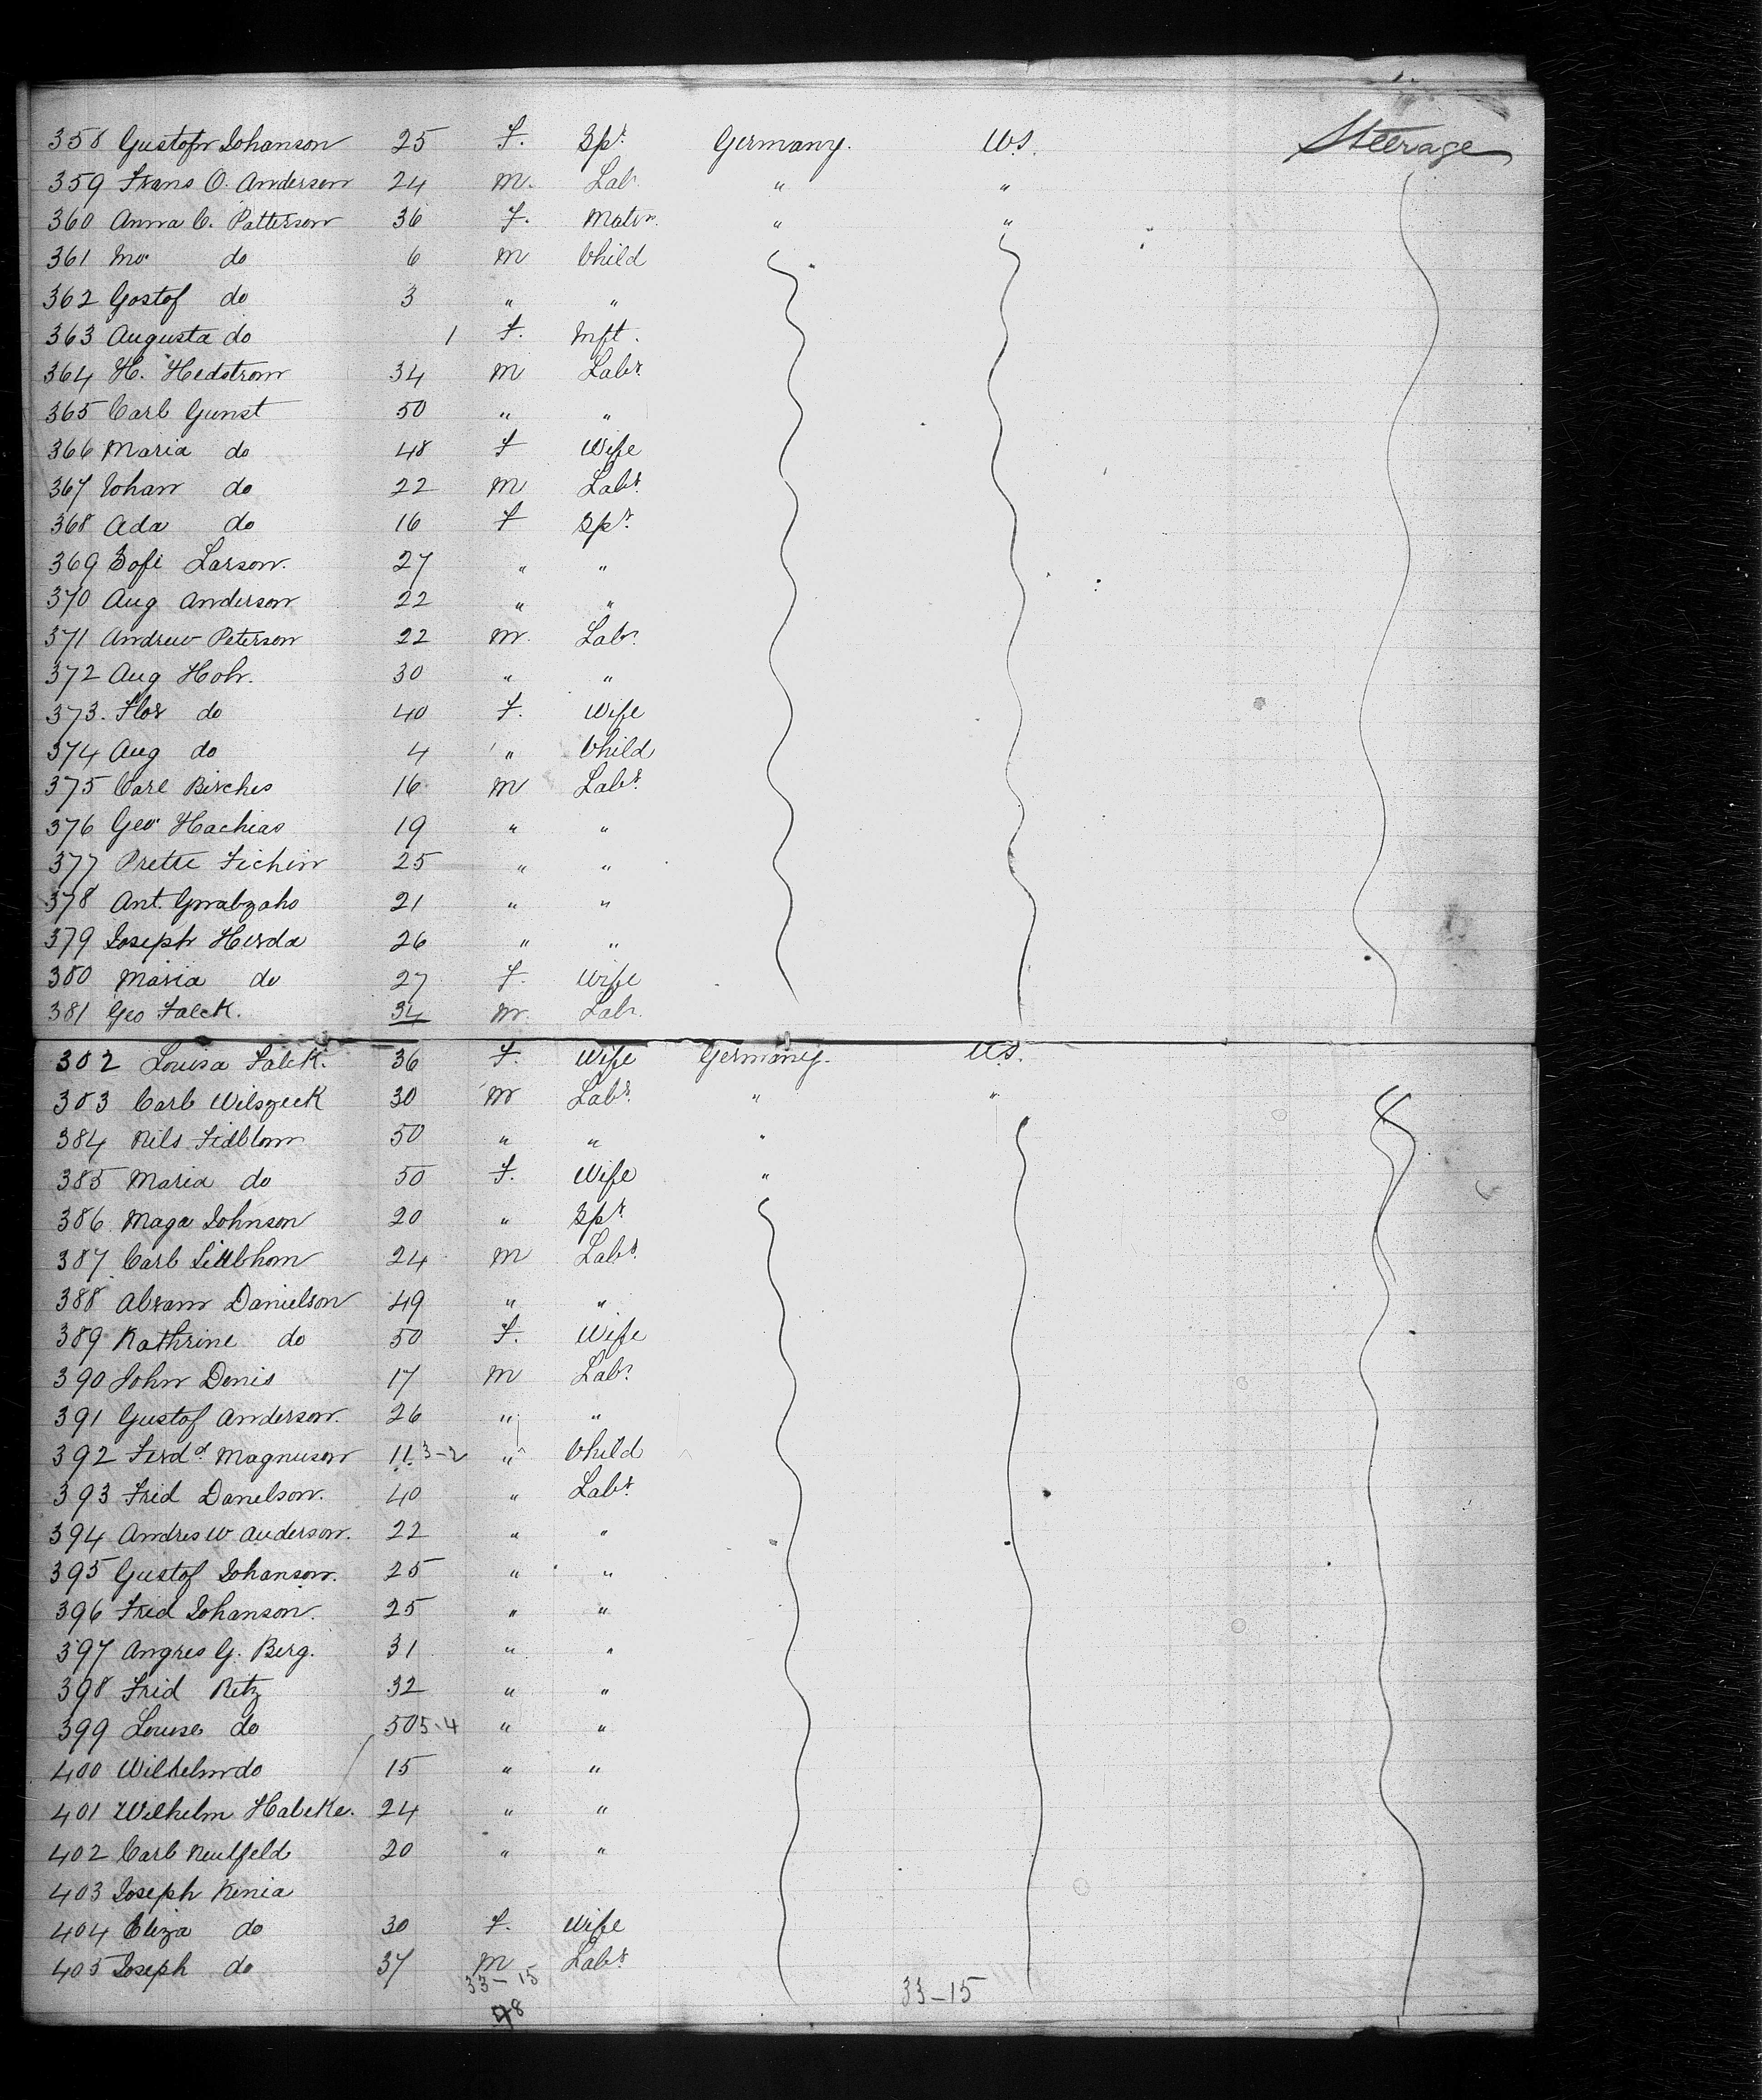 358 Gustofn Johanson 25 F. Spr. Germany. U.S. Steerage
359 Frans O. Anderson 24 M. Lab. " "
360 Anna C. Patterson 36 F. Matrn. " "
361 do 6 M Child
362 Gostof do 3 " "
363 Augusta do 1 F. Inft.
364 H. Hedstrom 34 M Labr.
365 Carl Gunst 50 " "
366 Maria do 48 F Wife
367 Johan do 22 M Labr.
368 Ada do 16 F Spr.
369 Sofi Larson. 27 " "
370 Aug Anderson 22 " "
371 Andrew Peterson 22 M. Labr.
372 Aug Hohr. 30 " "
373. Flor do 40 F. Wife
374 Aug do 4 " Child
375 Carl Birches 16 M Labr.
376 Geo Hachias 19 " "
377 Prette Fichin 25 " "
378 Ant. 21 " "
379 Joseph Herda 26 " "
380 Maria do 27 F. Wife
381 Geo Falck. 34 M. Labr.
382 Louisa Falck. 36 F. Wife Germany. U.S.
383 Carl Wilszeck 30 M Labr. " "
384 Nils Fidblom 50 " " "
385 Maria do 50 F. Wife "
386 Maga Johnson 20 " Spr.
387 Carl 24 M Labr.
388 Abram Danielson 49 " "
389 Kathrine do 50 F. Wife
390 John Denis 17 M Labr.
391 Gustof Anderson. 26 " "
392 Ferdd. Magnuson 11. 3-2 " Child
393 Frid Danelson. 40 " Labr.
394 Andres W Anderson. 22 " "
395 Gustof Johanson. 25 " "
396 Fred Johanson. 25 " "
397 Angres G. Berg. 31 " "
398 Frid Retz 32 " "
399 Louise do 50 5-4 " "
400 Wilhelm do 15 " "
401 Wilhelm Halcke. 24 " "
402 Carl Neulfeld 20 " "
403 Joseph Kenia
404 Eliza do 30 F. Wife
405 Joseph do 37 M Labr.
33-15 33-15
98